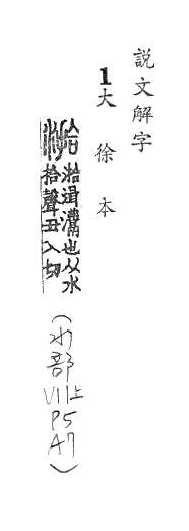 説文解字
1大徐本
湁湒也从水
拾聲丑入切
(水部VII上P5A7)